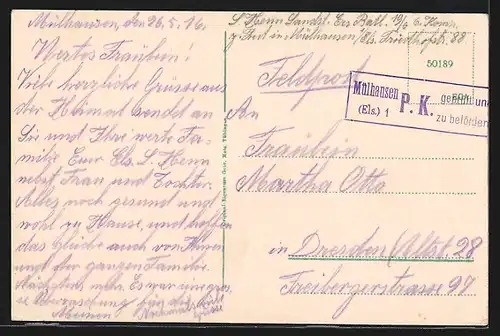 Mülhausen, den 26.5.16.
Wertes Fräulein!
Viele herzliche Grüsse aus
der Heimat sendet an
Sie und Ihre werte Fa-
milie Eur Els. S. Henn
nebst Frau und Tochter.
Alles noch gesund und
wohl zu Hause, und hoffen
das Gleiche auch von Ihnen
und der ganzen Familie.
Nächstens mehr. Es war eine gros-
se Überraschung für die
Meinen
Nochmals
Grüsse
S. Henn Landst. Ers. Batl. 6. Komp.
z. Zeit in Mülhausen, Els. 88
Feldpost
50189
Mülhausen
(Els.) 1
P. K.
geprüft und
zu befördern
An
Fräulein
Martha Otto
in Dresden (Altst) 28
Freibergerstrasse 97